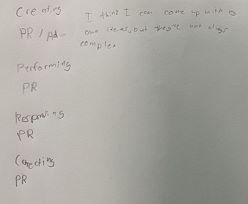 Creating
I think I can come up with
PR / Ad-
own ideas, but they're not always
complex
Performing
PR
Responding
PR
Conecting
PR